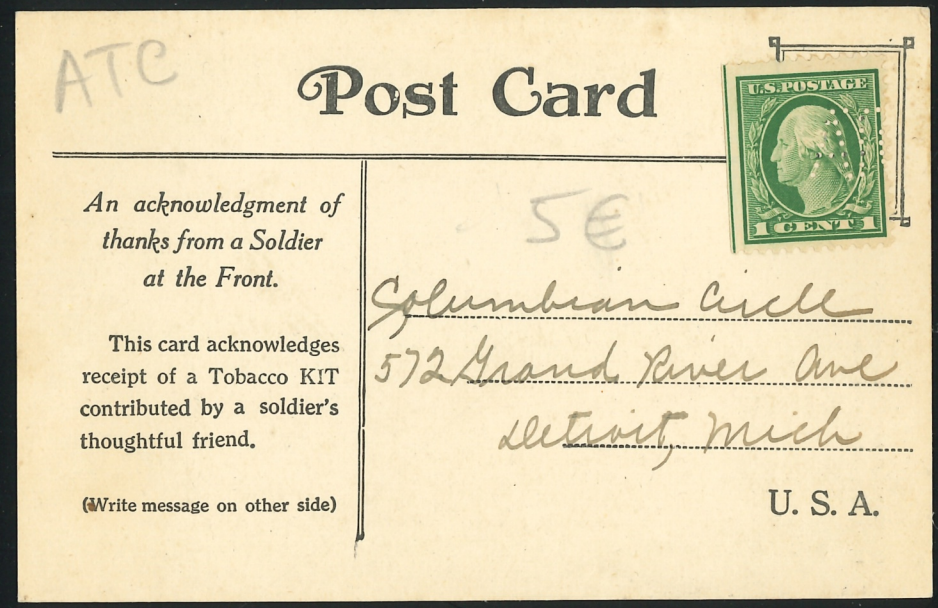 ATC
Post Card
U.S.POSTAGE
1 CENT 1
An acknowledgment of
thanks from a Soldier
at the Front.
This card acknowledges
receipt of a Tobacco KIT
contributed by a soldier's
thoughtful friend.
(Write message on other side)
5€
Columbian Circle
572 Grand River Ave
Detroit, Mich
U. S. A.